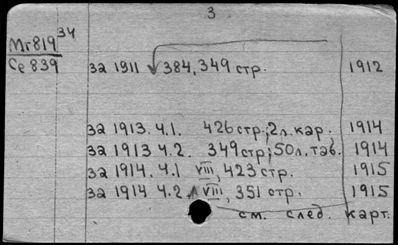 3
Мг819 34
Се 839
за 1911 384, 349 стр. 1912
за 1913. ч.1. 426 стр.; 2л. кар. 1914
за 1913 ч.2. 349 стр; 50л. таб. 1914
за 1914. ч.1 VIII, 423 стр. 1915
за 1914 ч.2 VIII, 351 стр. 1915
см. след. карт.